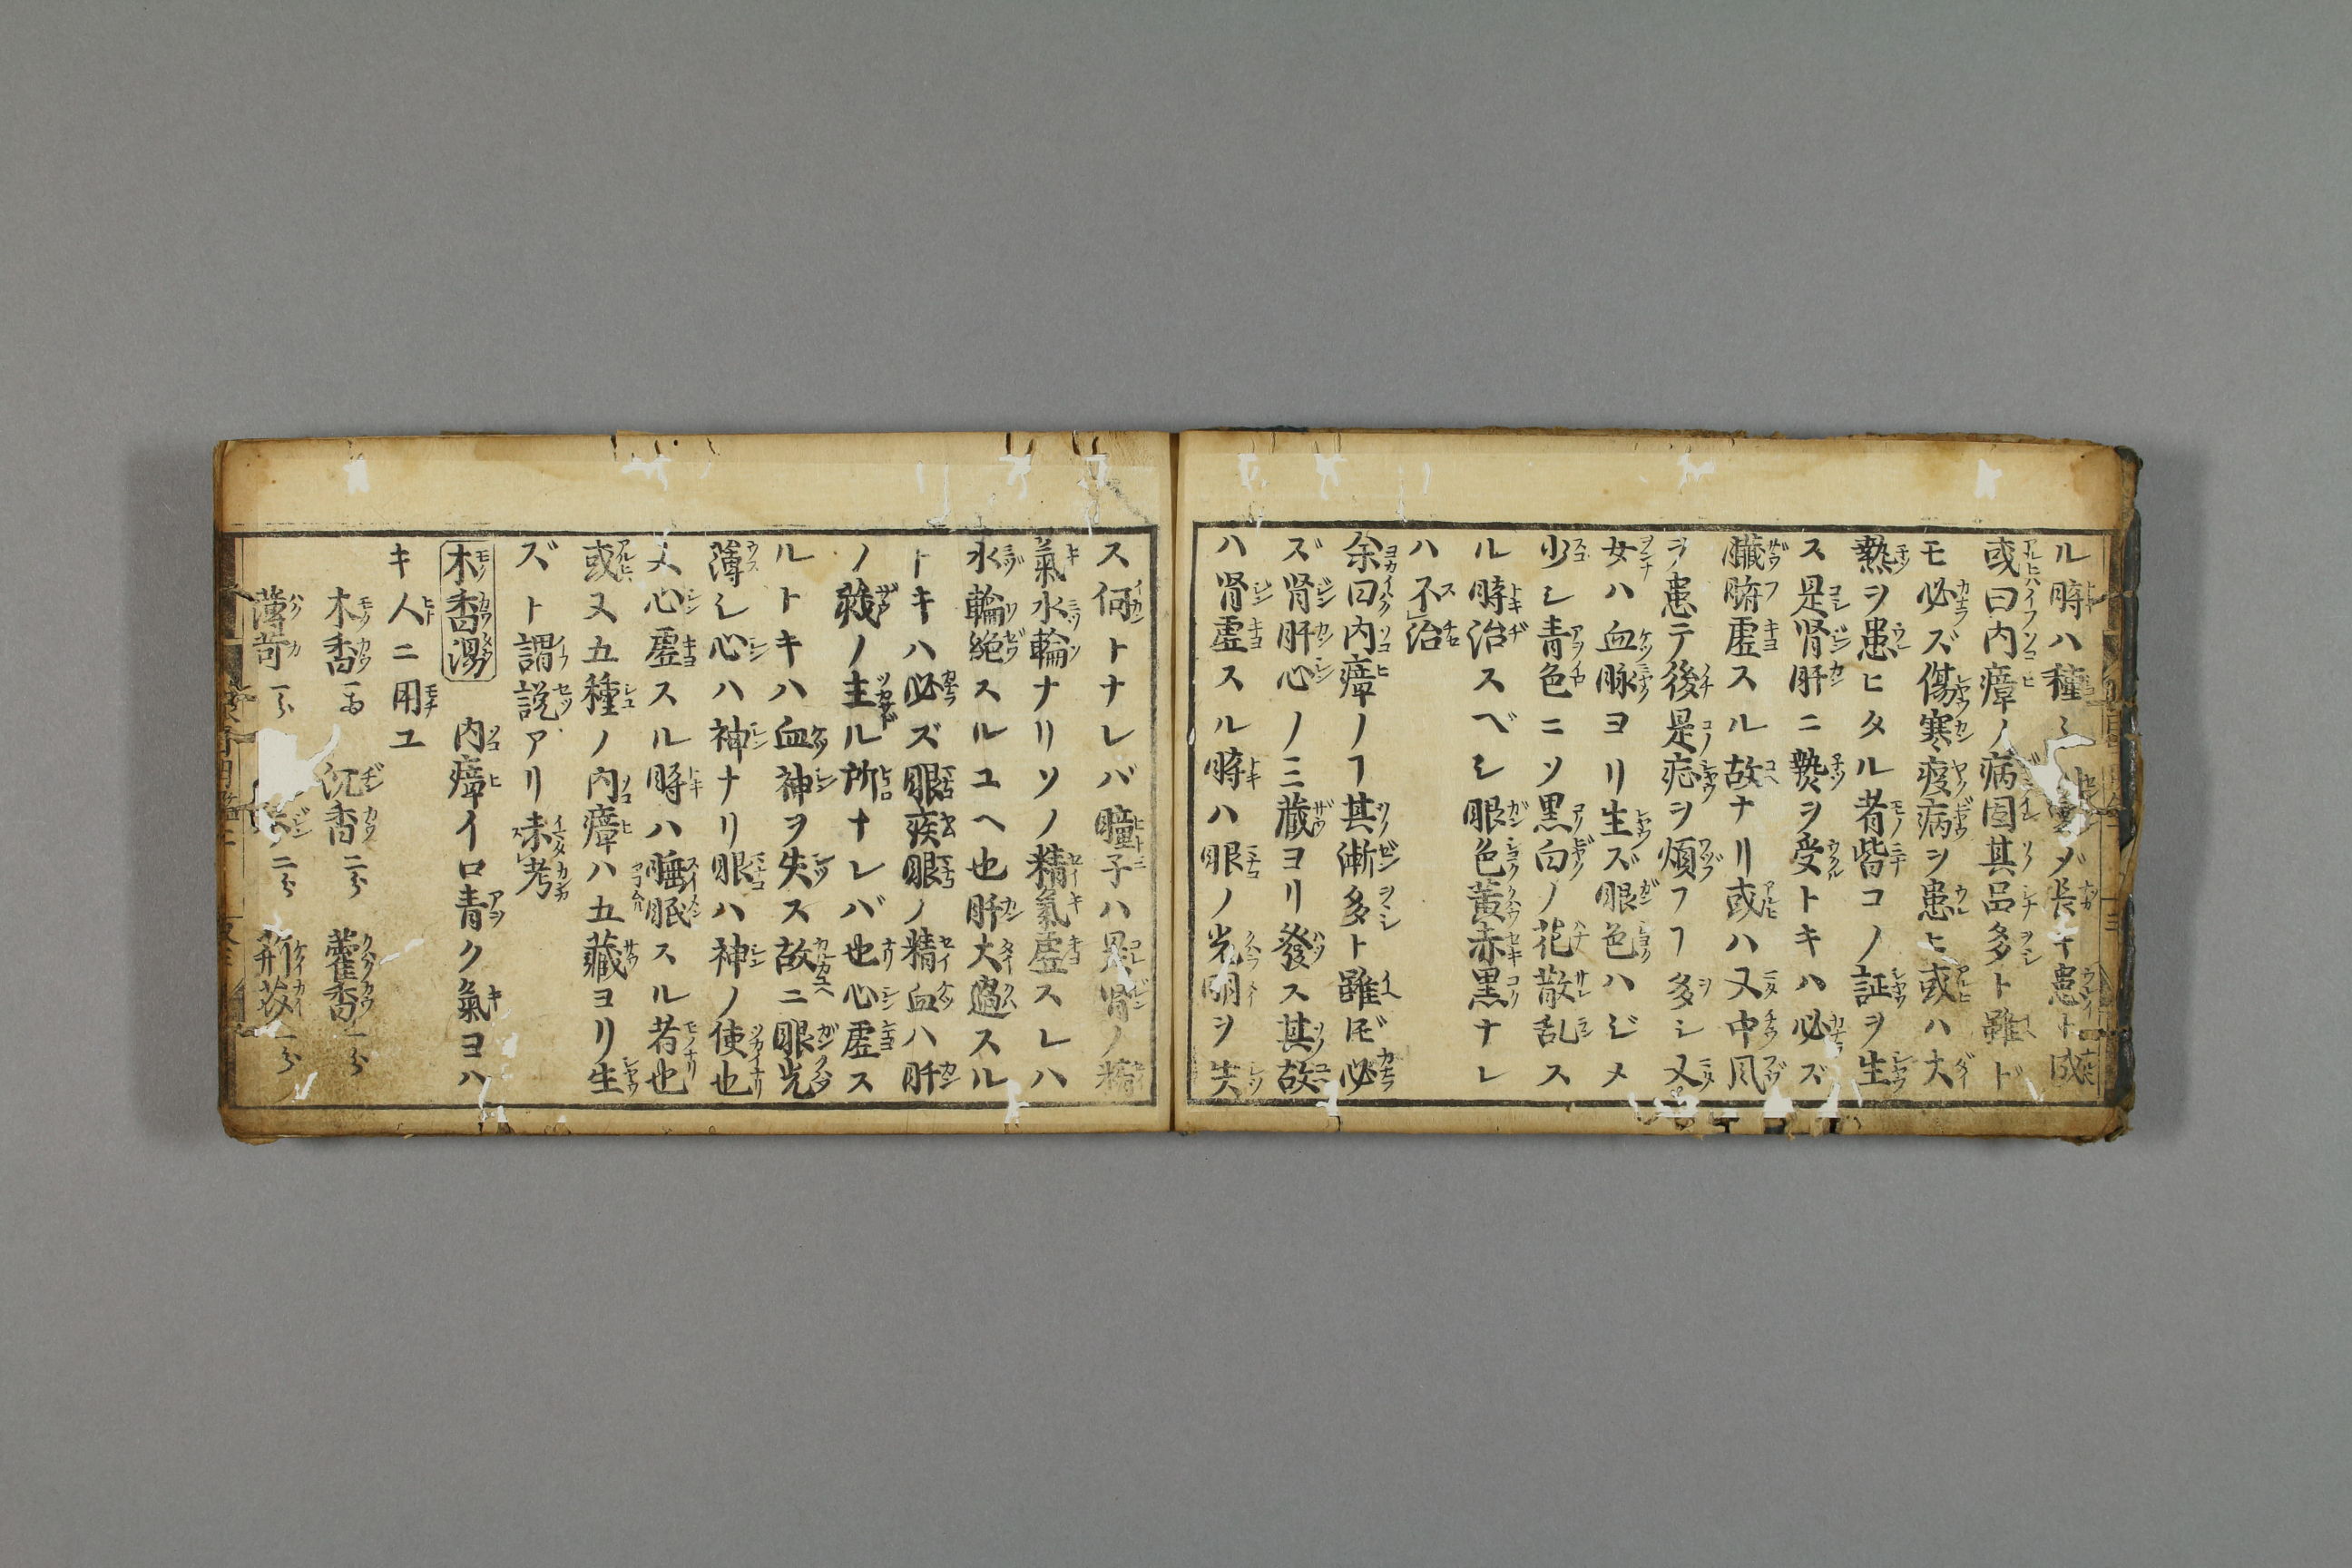 ル時ハ種ミ メ長キ患ト成
或曰内瘴ノ病因其品多ト雖ド
モ必ズ傷寒疫病ヲ患ヒ或ハ大
熱ヲ患ヒタル者皆コノ証ヲ生
ス是肾肝ニ熱ヲ受トキハ必ズ
臓腑虚スル故ナリ或ハ又中風
ヲ患テ後是症ヲ煩フヿ多シ又
女ハ血脉ヨリ生ズ眼色ハジメ
少シ青色ニソ黒白ノ花散乱ス
ル時治スベシ眼色黄赤黒ナレ
ハ不治
余曰内瘴ノヿ其漸多ト雖𪜈必
ズ肾肝心ノ三藏ヨリ發ス其故
ハ肾虚スル時ハ眼ノ光明ヲ失
ス何トナレバ瞳子ハ是肾ノ精
氣水輪ナリソノ精氣虚スレハ
水輪絶スルユヘ也肝大過スル
トキハ必ズ眼疾眼ノ精血ハ肝
ノ藏ノ主ル所ナレバ也心虚ス
ルトキハ血神ヲ失ス故ニ眼光
薄シ心ハ神ナリ眼ハ神ノ使也
又心虚スル時ハ睡眠スル者也
或又五種ノ内瘴ハ五藏ヨリ生
ズト謂説アリ未考
木香湯 内瘴イロ青ク氣ヨハ
キ人ニ用ユ
木香 沉香二分 藿香一分
薄荷 二分 荊芥一分